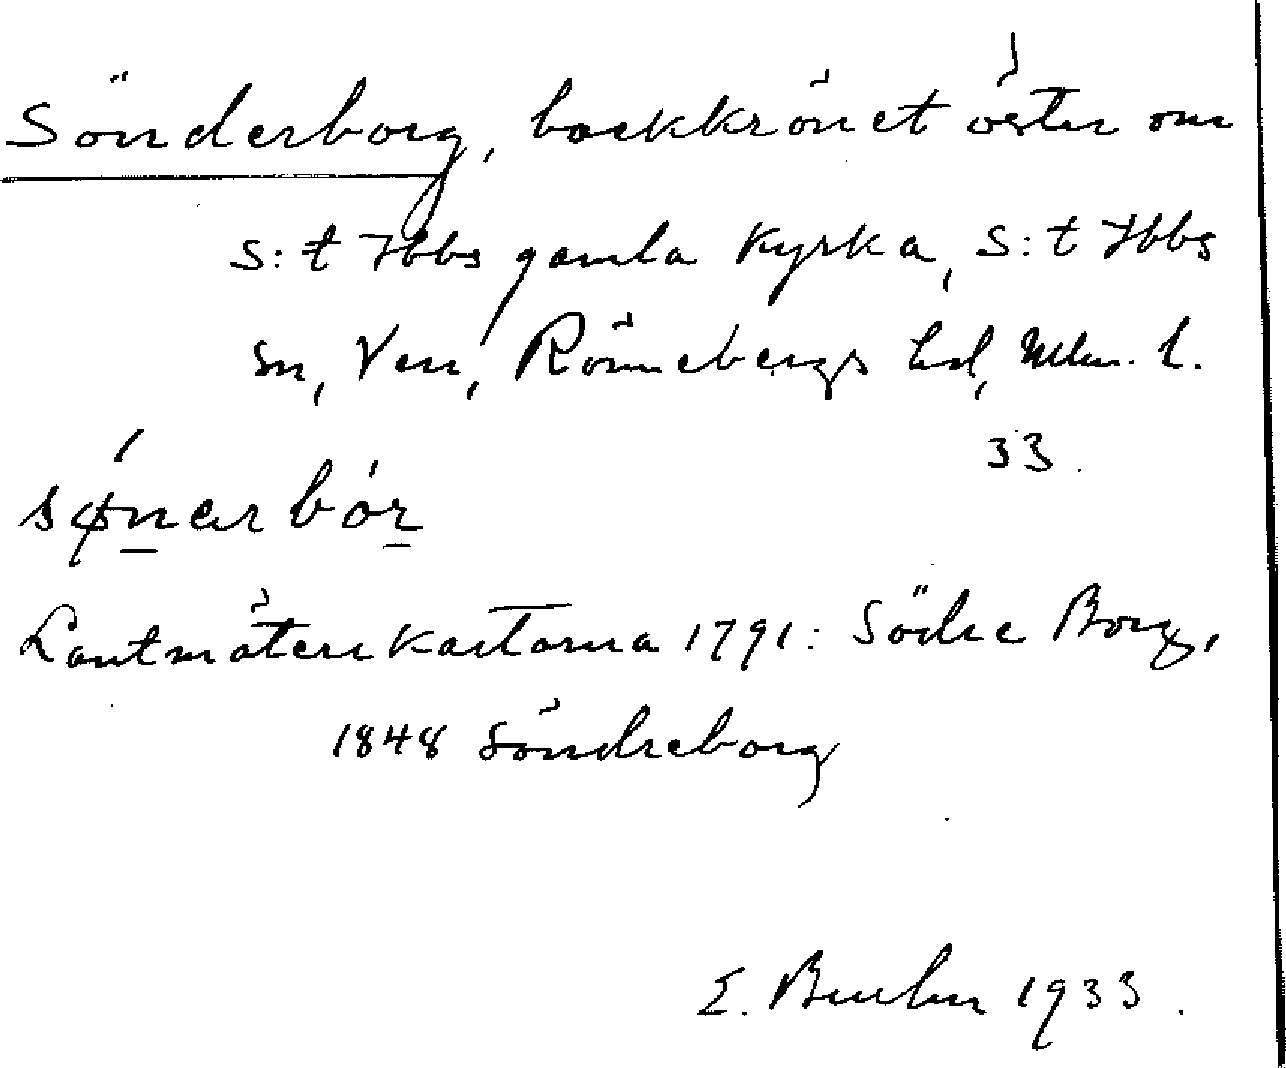 Sönderborg, backkrönet öster om
S:t Ibbs gamla kyrka, S:t Ibbs
sn, Ven, Rönnebergs hd, Mlm. l.
33.
sǿnarbór
Lantmäterikartorna 1791: Södre Borg,
1848 Söndreborg
E. 1933.